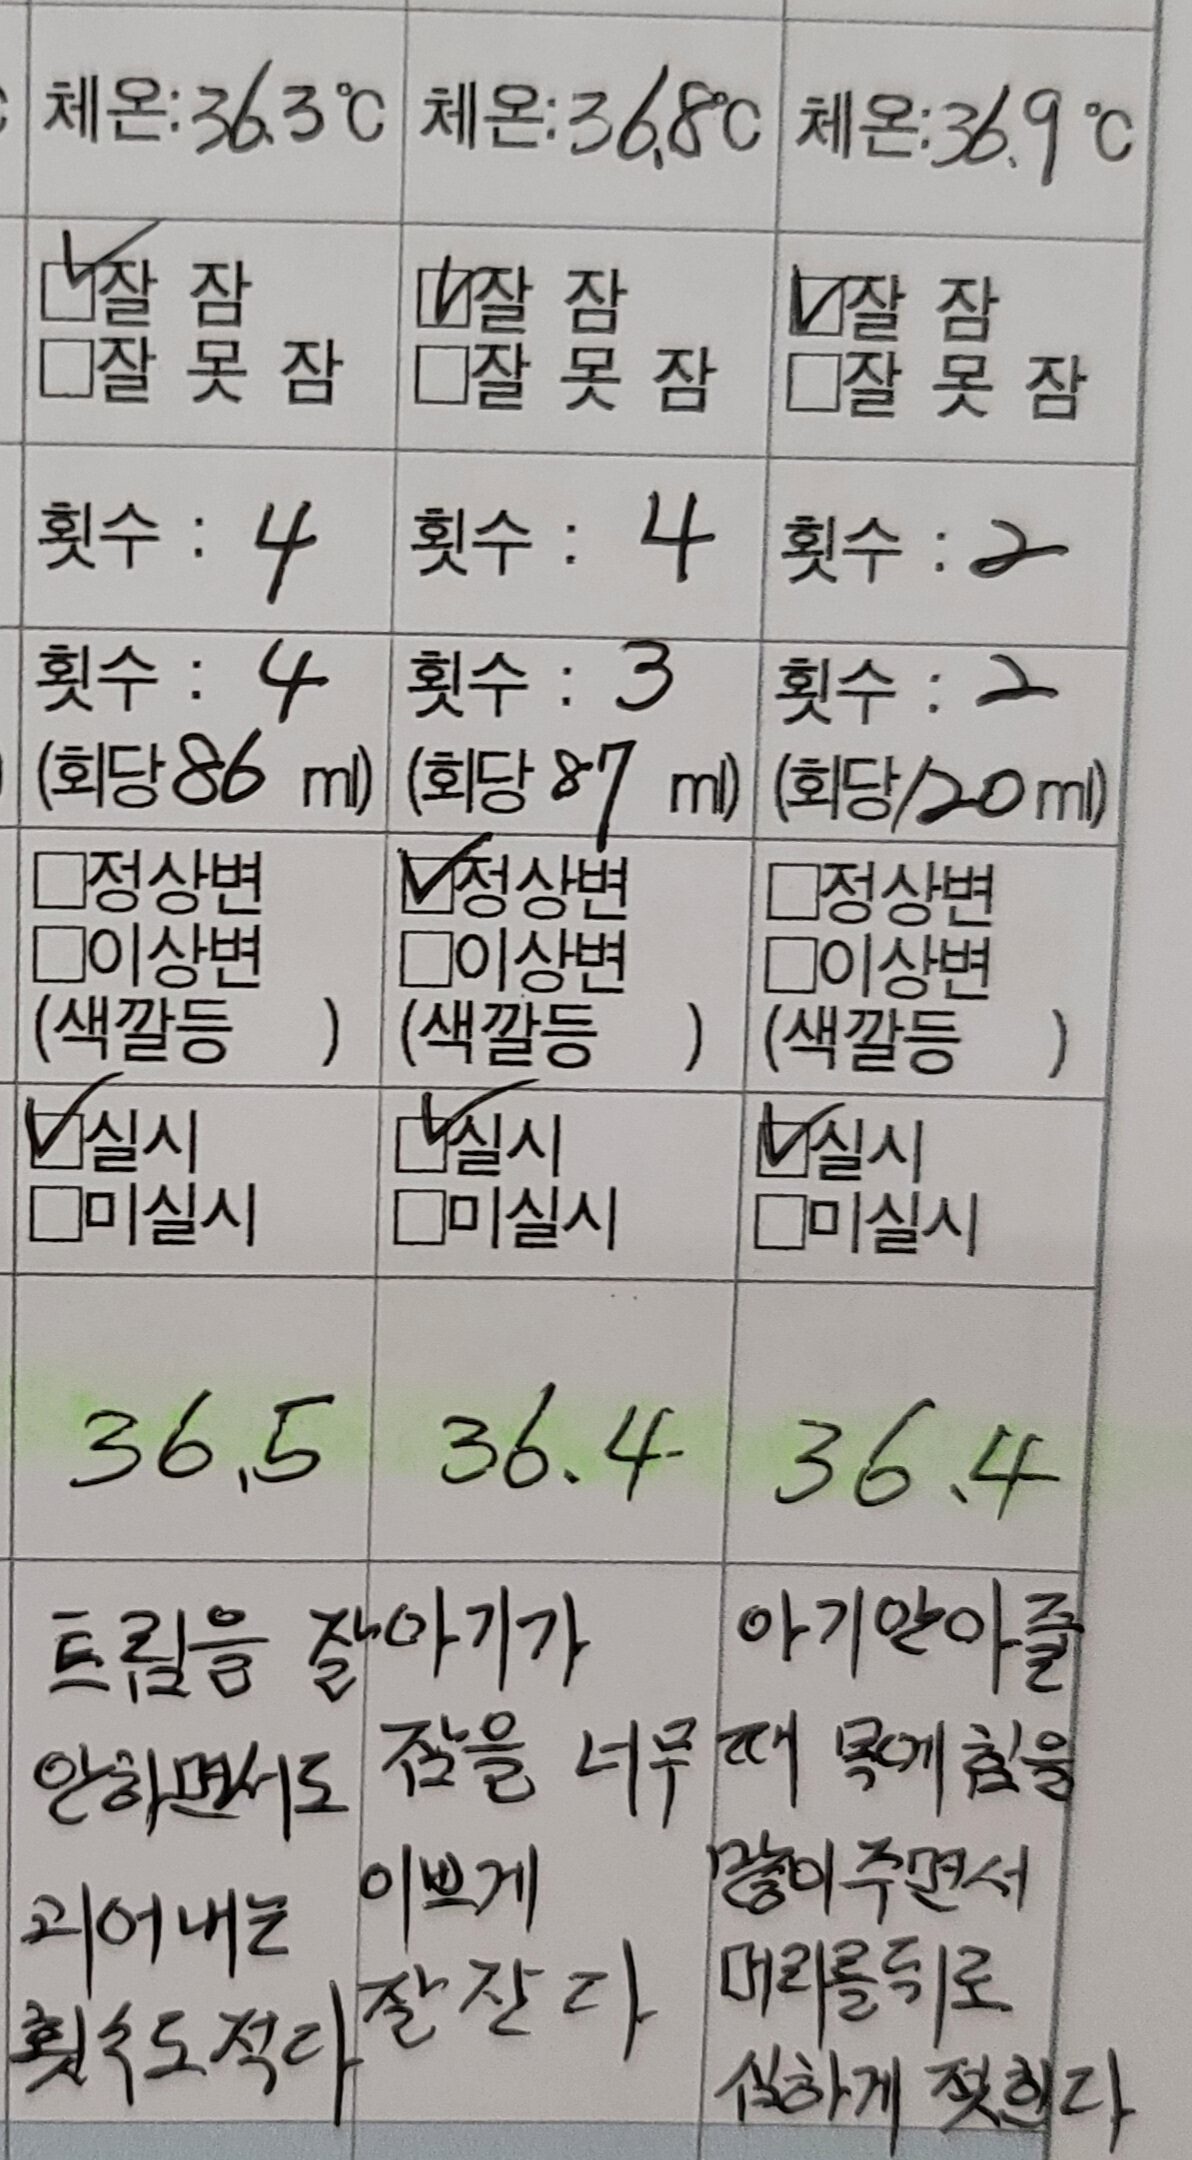 체온:36.3℃
체온:36.8℃
체온:36.9℃
잘 잠
잘 못 잠
잘 잠
잘 못 잠
잘 잠
잘 못 잠
횟수 : 4
횟수 : 4
횟수 : 2
횟수 : 4
(회당 86 ml)
횟수 : 3
(회당 87 ml)
횟수 : 2
(회당 120 ml)
정상변
이상변
(색깔등 )
정상변
이상변
(색깔등 )
정상변
이상변
(색깔등 )
실시
미실시
실시
미실시
실시
미실시
36.5
36.4
36.4
트림을 잘
안하면서도
괴어내는
횟수도 적다
아기가
잠을 너무
이쁘게
잘 잔다
아기 안아줄
때 목에 힘을
많이 주면서
머리를 뒤로
심하게 젖힌다